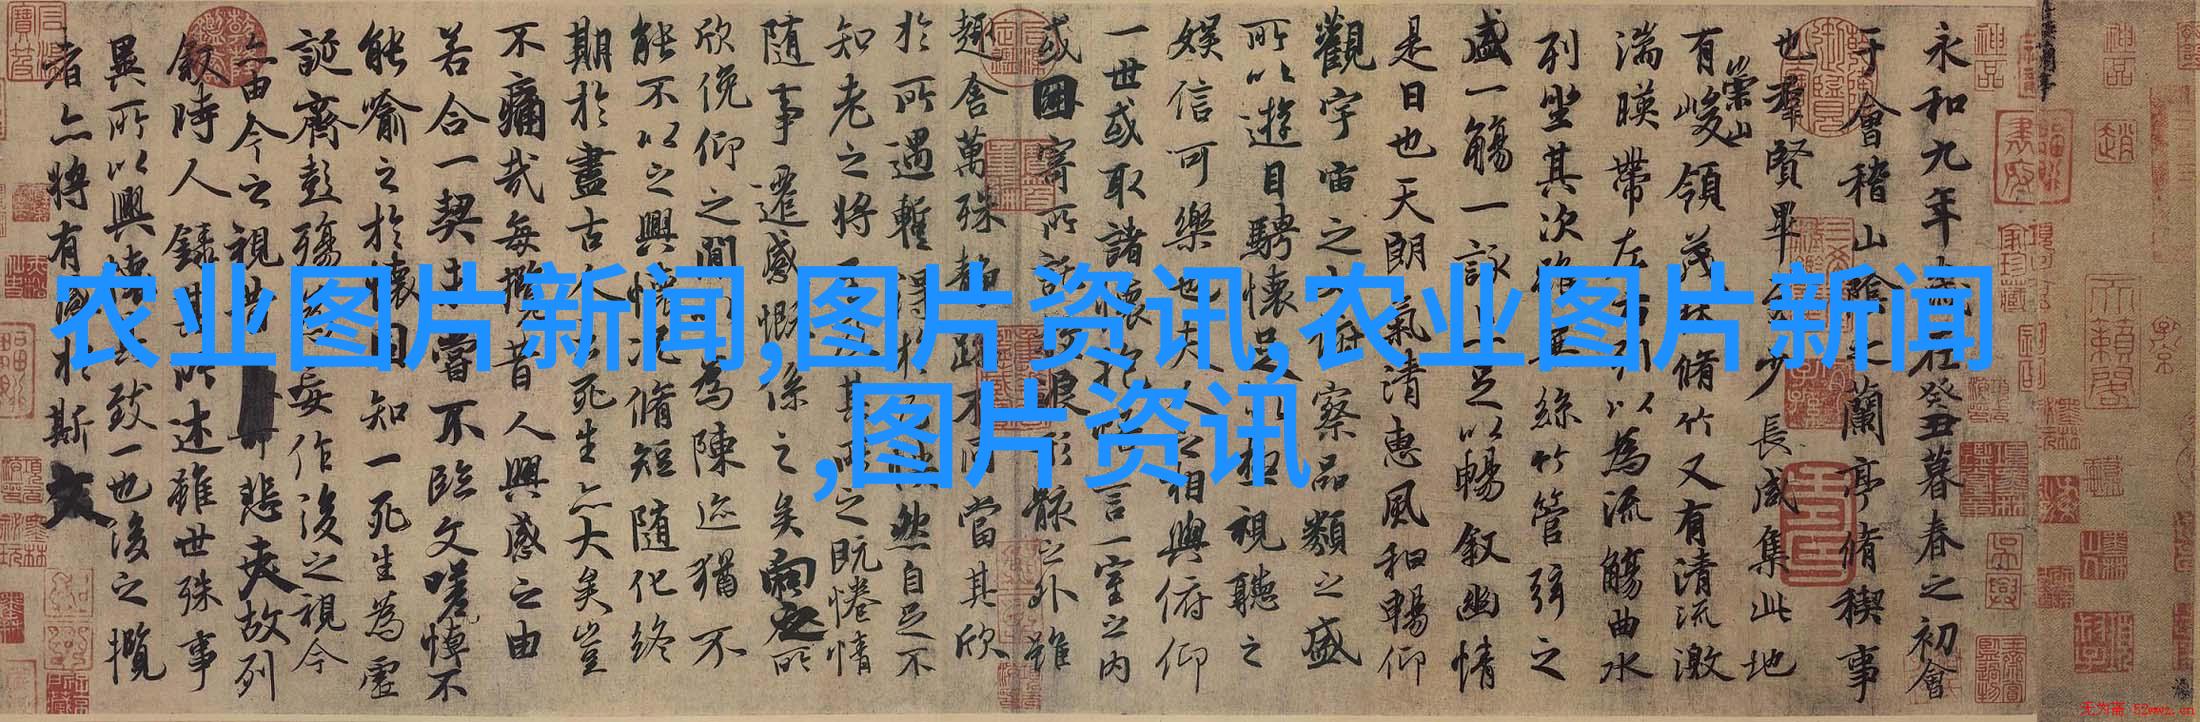 永和九年歲在癸丑暮春之初會
于會稽山陰之蘭亭脩稧事
也羣賢畢至少長咸集此地
有崇山峻領茂林脩竹又有清流激
湍暎帶左右引以為流觴曲水
列坐其次雖無絲竹管弦之
盛一觴一詠亦足以暢叙幽情
是日也天朗氣清惠風和暢仰
觀宇宙之大俯察品類之盛
所以遊目騁懷足以極視聽之
娛信可樂也夫人之相與俯仰
一世或取諸懷抱悟言一室之內
或因寄所託放浪形骸之外雖
趣舍萬殊靜躁不同當其欣
於所遇暫得於己怏然自足不
知老之將至及其所之既惓情
隨事遷感慨係之矣向之所
欣俛仰之閒以為陳迹猶不
能不以之興懷況脩短隨化終
期於盡古人云死生亦大矣豈
不痛哉每攬昔人興感之由
若合一契未嘗不臨文嗟悼不
能喻之於懷固知一死生為虛
誕齊彭殤為妄作後之視今
亦由今之視昔悲夫故列
叙時人錄其所述雖世殊事
異所以興懷其致一也後之攬
者亦將有感於斯文
农业图片新闻,图片资讯,农业图片新闻
,图片资讯